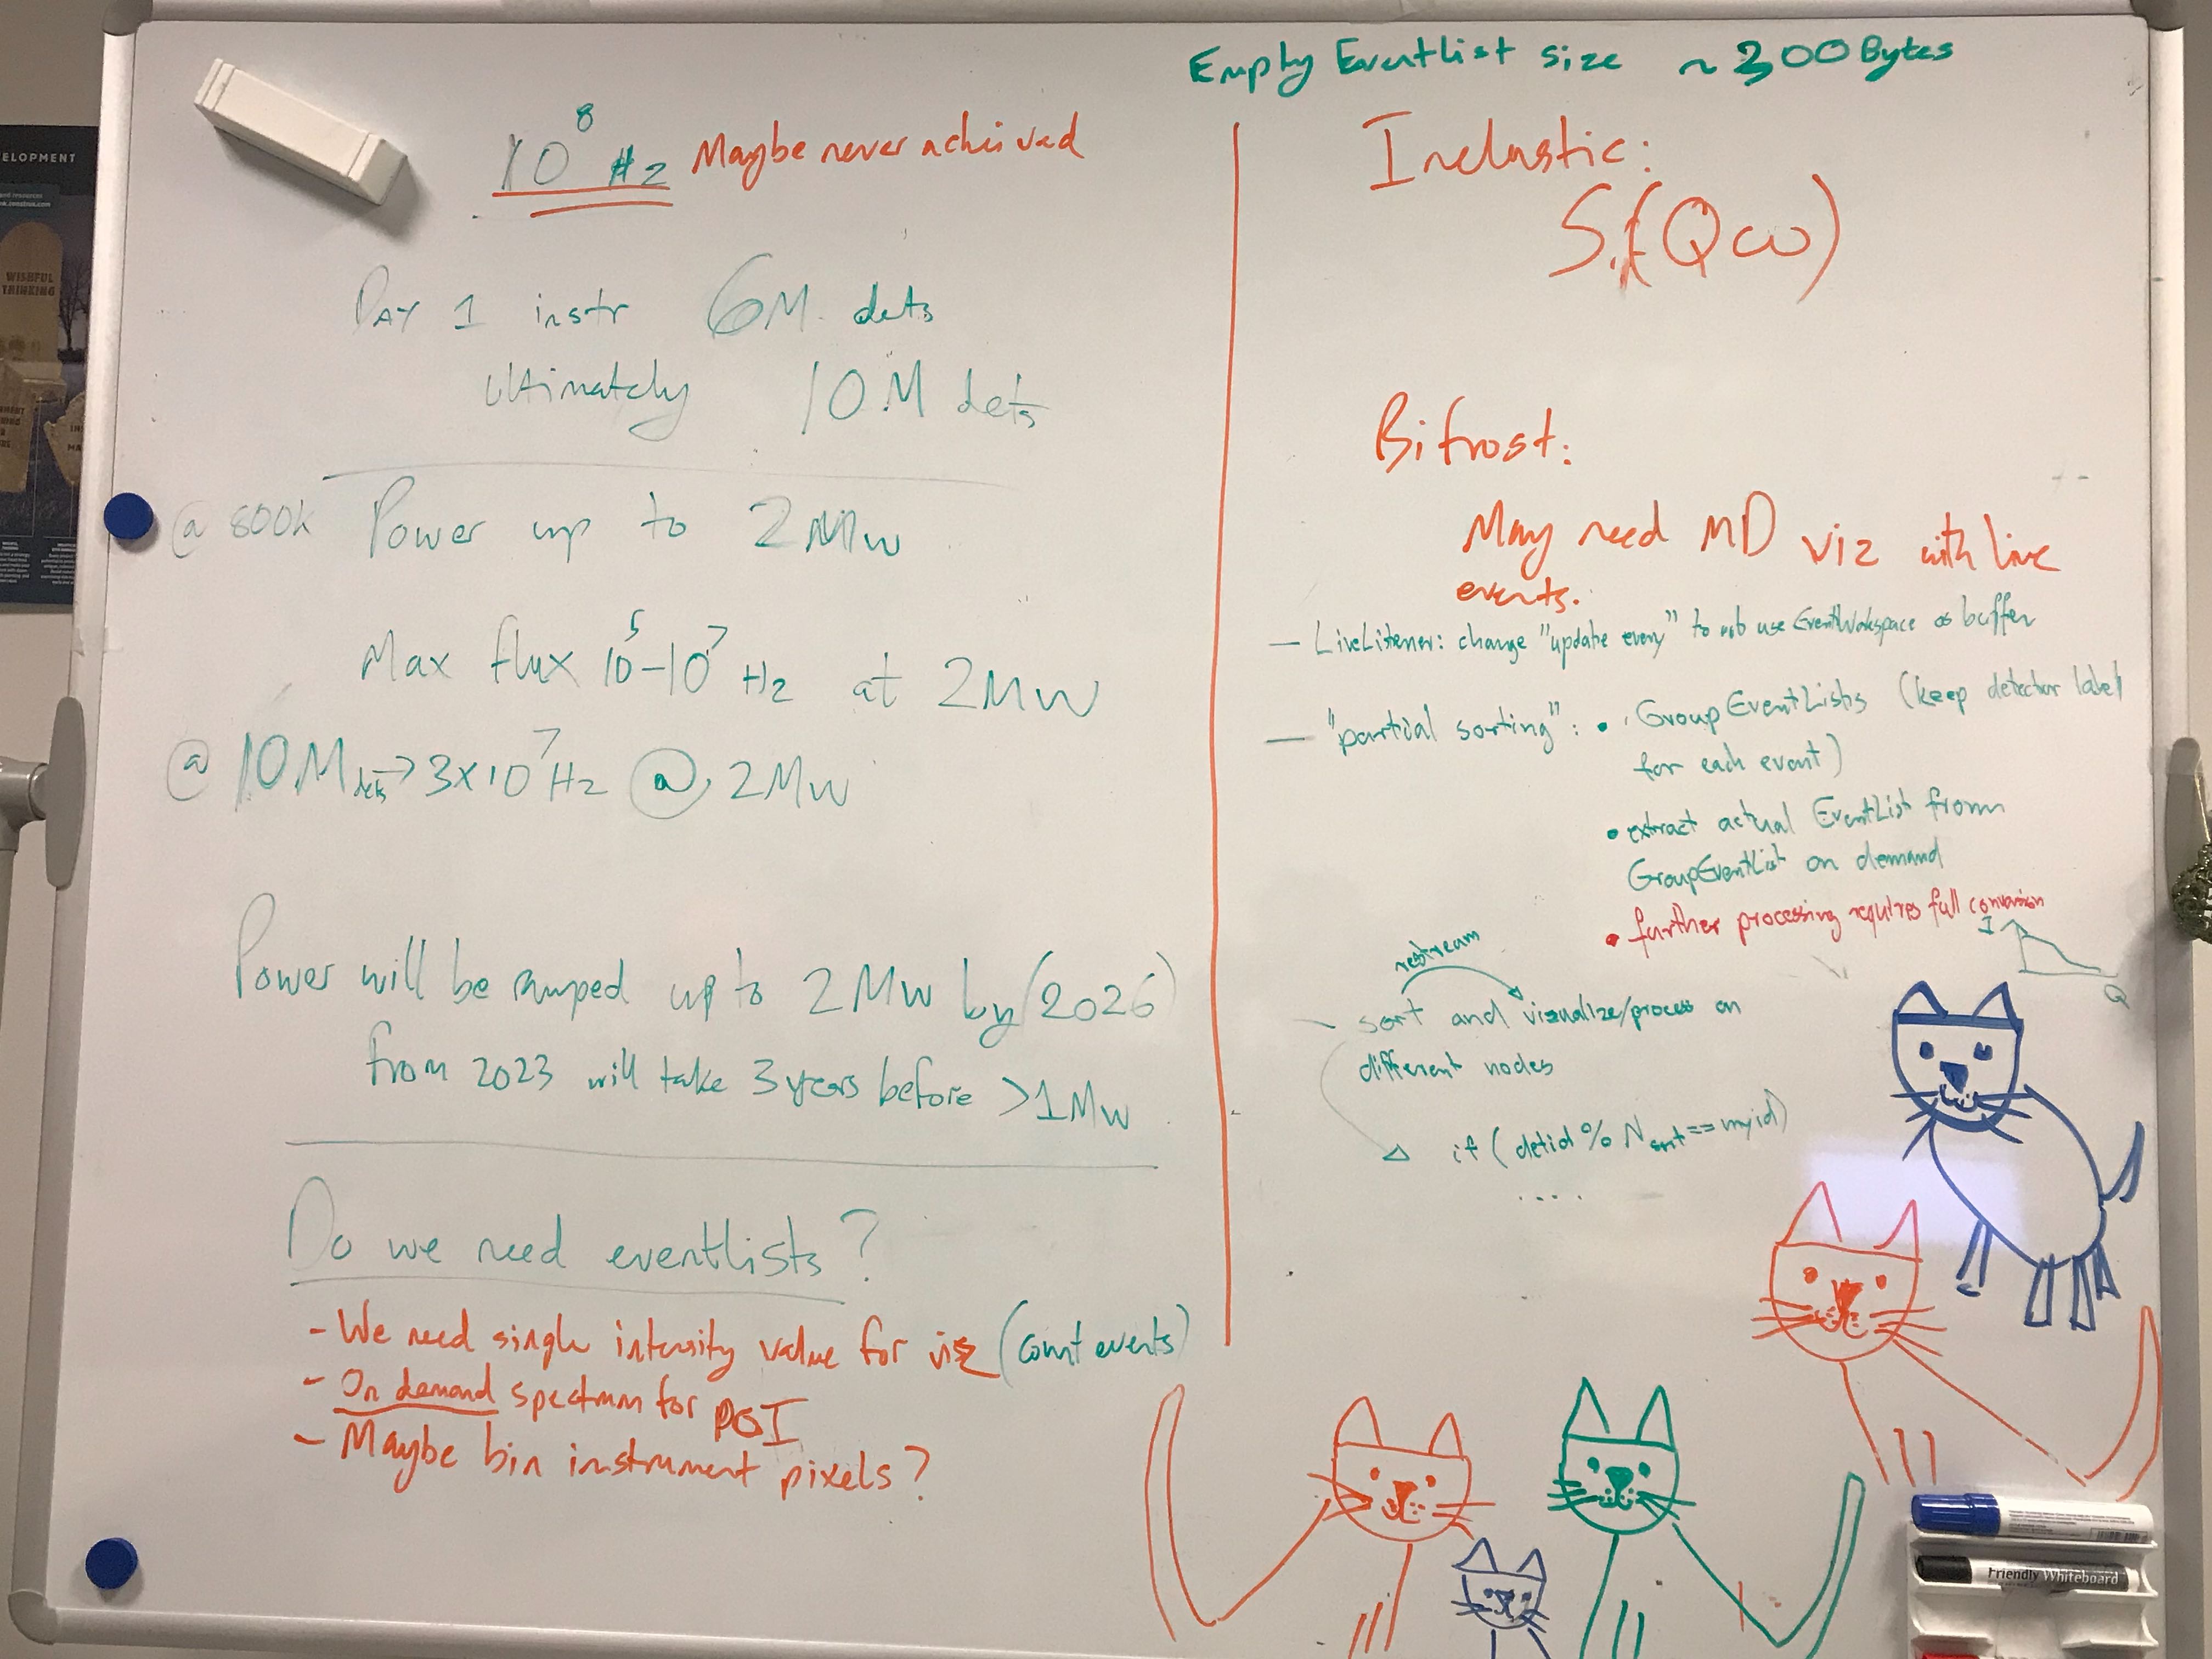 Empty Eventlist size ~ 300 Bytes
10^8 Hz Maybe never acheived
DAY 1 instr 6M dets
ultimately 10M dets
@ 800k Power up to 2MW
Max flux 10^5-10^7 Hz at 2MW
@ 10M dets → 3x10^7 Hz @ 2MW
Power will be ramped up to 2MW by (2026)
from 2023 will take 3 years before >1MW
Do we need eventlists?
- We need single intensity value for viz (count events)
- On demand spectrum for
- Maybe bin instrument pixels?
Inelastic:
S(Qω)
Bifrost:
May need MD viz with live
events.
— LiveListener: change "update every" to not use EventWorkspace as buffer
— "partial sorting": • GroupEventLists (keep detector label
for each event)
• extract actual EventList from
GroupEventList on demand
• further processing requires full conversion
I
Q
restream
- sort and visualize/process on
different nodes
if (detid % N == myid)
....
ELOPMENT
WISHFUL
THINKING
Friendly Whiteboard